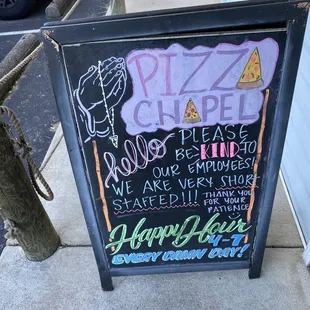 PIZZA
CHAPEL
hello
PLEASE
BE KIND TO
OUR EMPLOYEES!
WE ARE VERY SHORT
STAFFED!!!
THANK YOU
FOR YOUR
PATIENCE
Happy Hour
4-7
EVERY DAMN DAY!